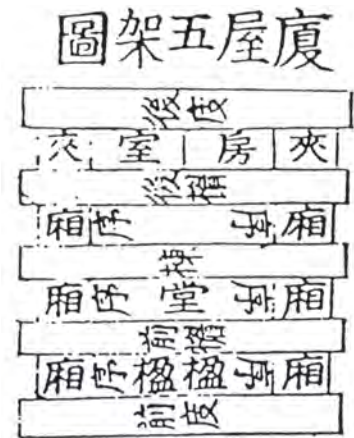 廈屋五架圖
後庋
夾房室夾
後楣
廂序序廂
棟
廂序堂序廂
前楣
廂序楹楹序廂
前庋